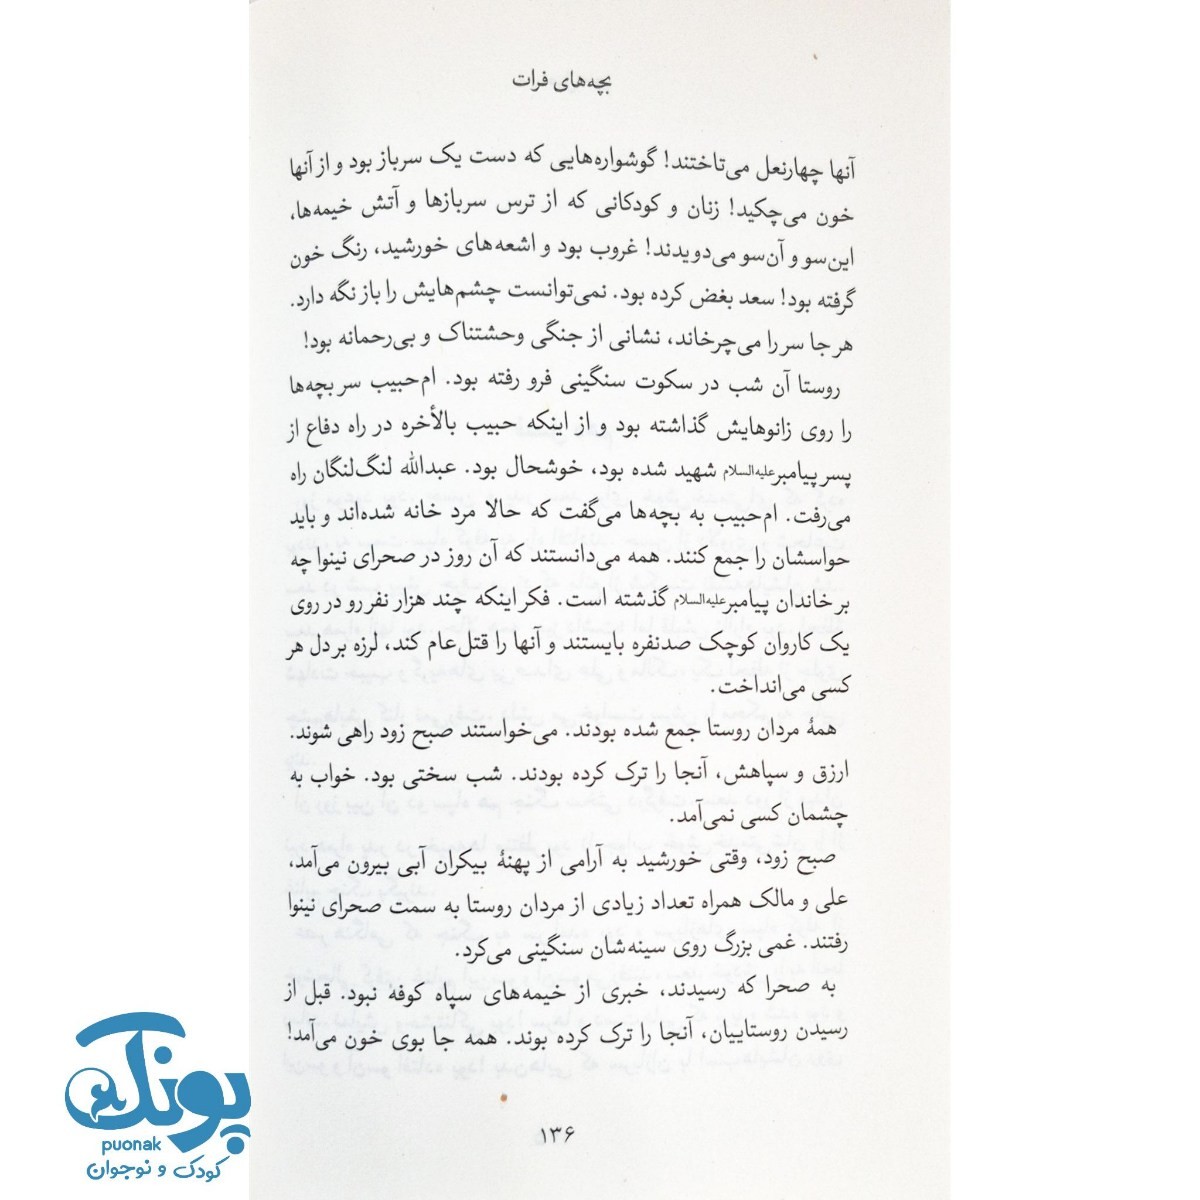 بچه‌های فرات
آنها چهارنعل می‌تاختند! گوشواره‌هایی که دست یک سرباز بود و از آنها
خون می‌چکید! زنان و کودکانی که از ترس سربازها و آتش خیمه‌ها،
این‌سو و آن‌سو می‌دویدند! غروب بود و اشعه‌های خورشید، رنگ خون
گرفته بود! سعد بغض کرده بود. نمی‌توانست چشم‌هایش را باز نگه دارد.
هر جا سر را می‌چرخاند، نشانی از جنگی وحشتناک و بی‌رحمانه بود!
روستا آن شب در سکوت سنگینی فرو رفته بود. ام‌حبیب سر بچه‌ها
را روی زانوهایش گذاشته بود و از اینکه حبیب بالأخره در راه دفاع از
پسر پیامبر علیه‌السلام شهید شده بود، خوشحال بود. عبدالله لنگ‌لنگان راه
می‌رفت. ام‌حبیب به بچه‌ها می‌گفت که حالا مرد خانه شده‌اند و باید
حواسشان را جمع کنند. همه می‌دانستند که آن روز در صحرای نینوا چه
بر خاندان پیامبر علیه‌السلام گذشته است. فکر اینکه چند هزار نفر رو در روی
یک کاروان کوچک صدنفره بایستند و آنها را قتل‌عام کند، لرزه بر دل هر
کسی می‌انداخت.
همهٔ مردان روستا جمع شده بودند. می‌خواستند صبح زود راهی شوند.
ارزق و سپاهش، آنجا را ترک کرده بودند. شب سختی بود. خواب به
چشمان کسی نمی‌آمد.
صبح زود، وقتی خورشید به آرامی از پهنهٔ بیکران آبی بیرون می‌آمد،
علی و مالک همراه تعداد زیادی از مردان روستا به سمت صحرای نینوا
رفتند. غمی بزرگ روی سینه‌شان سنگینی می‌کرد.
به صحرا که رسیدند، خبری از خیمه‌های سپاه کوفه نبود. قبل از
رسیدن روستاییان، آنجا را ترک کرده بوند. همه جا بوی خون می‌آمد!
۱۳۶
پونک
puonak
کودک و نوجوان